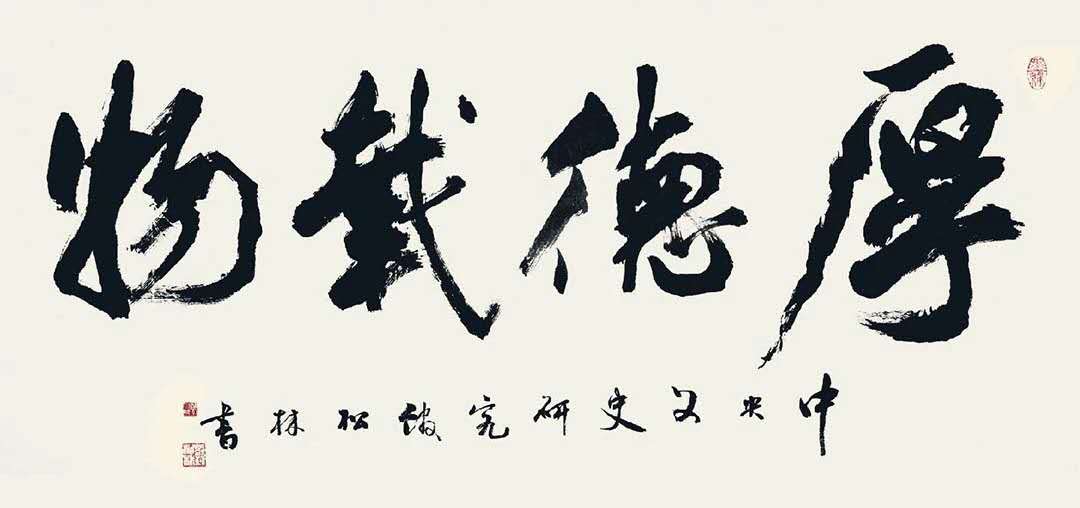 厚德载物
中央文史研究馆松林书